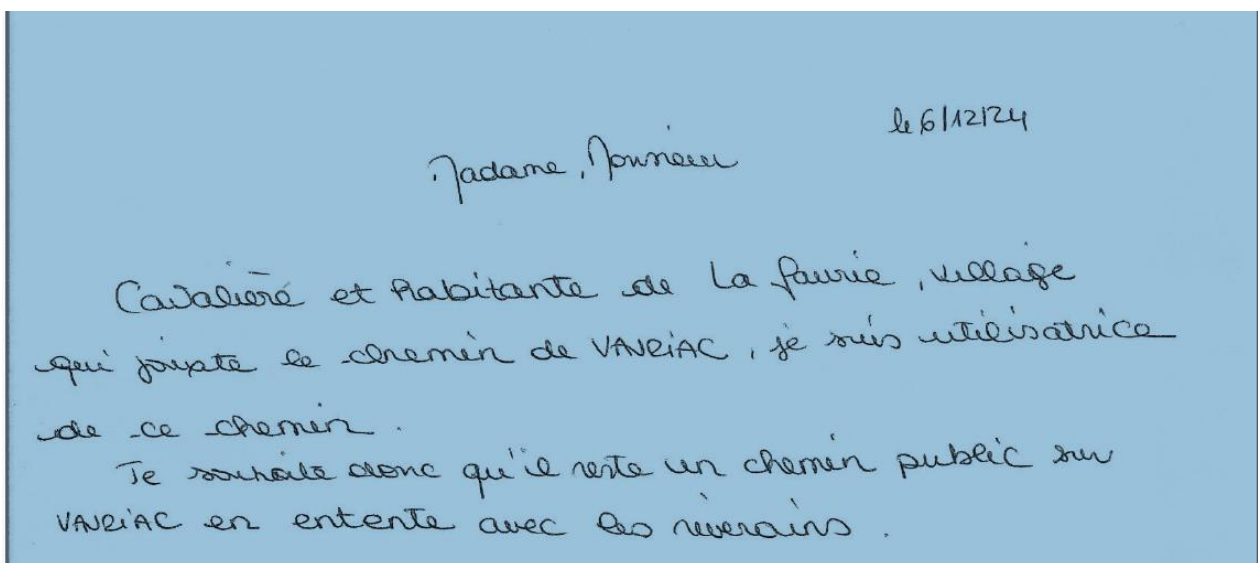 le 6/12/24
Madame, Monsieur
Cavalière et habitante de La faurie, village
qui jouxte le chemin de VAURIAC, je suis utilisatrice
de ce chemin.
Je souhaite donc qu'il reste un chemin public sur
VAURIAC en entente avec les riverains.